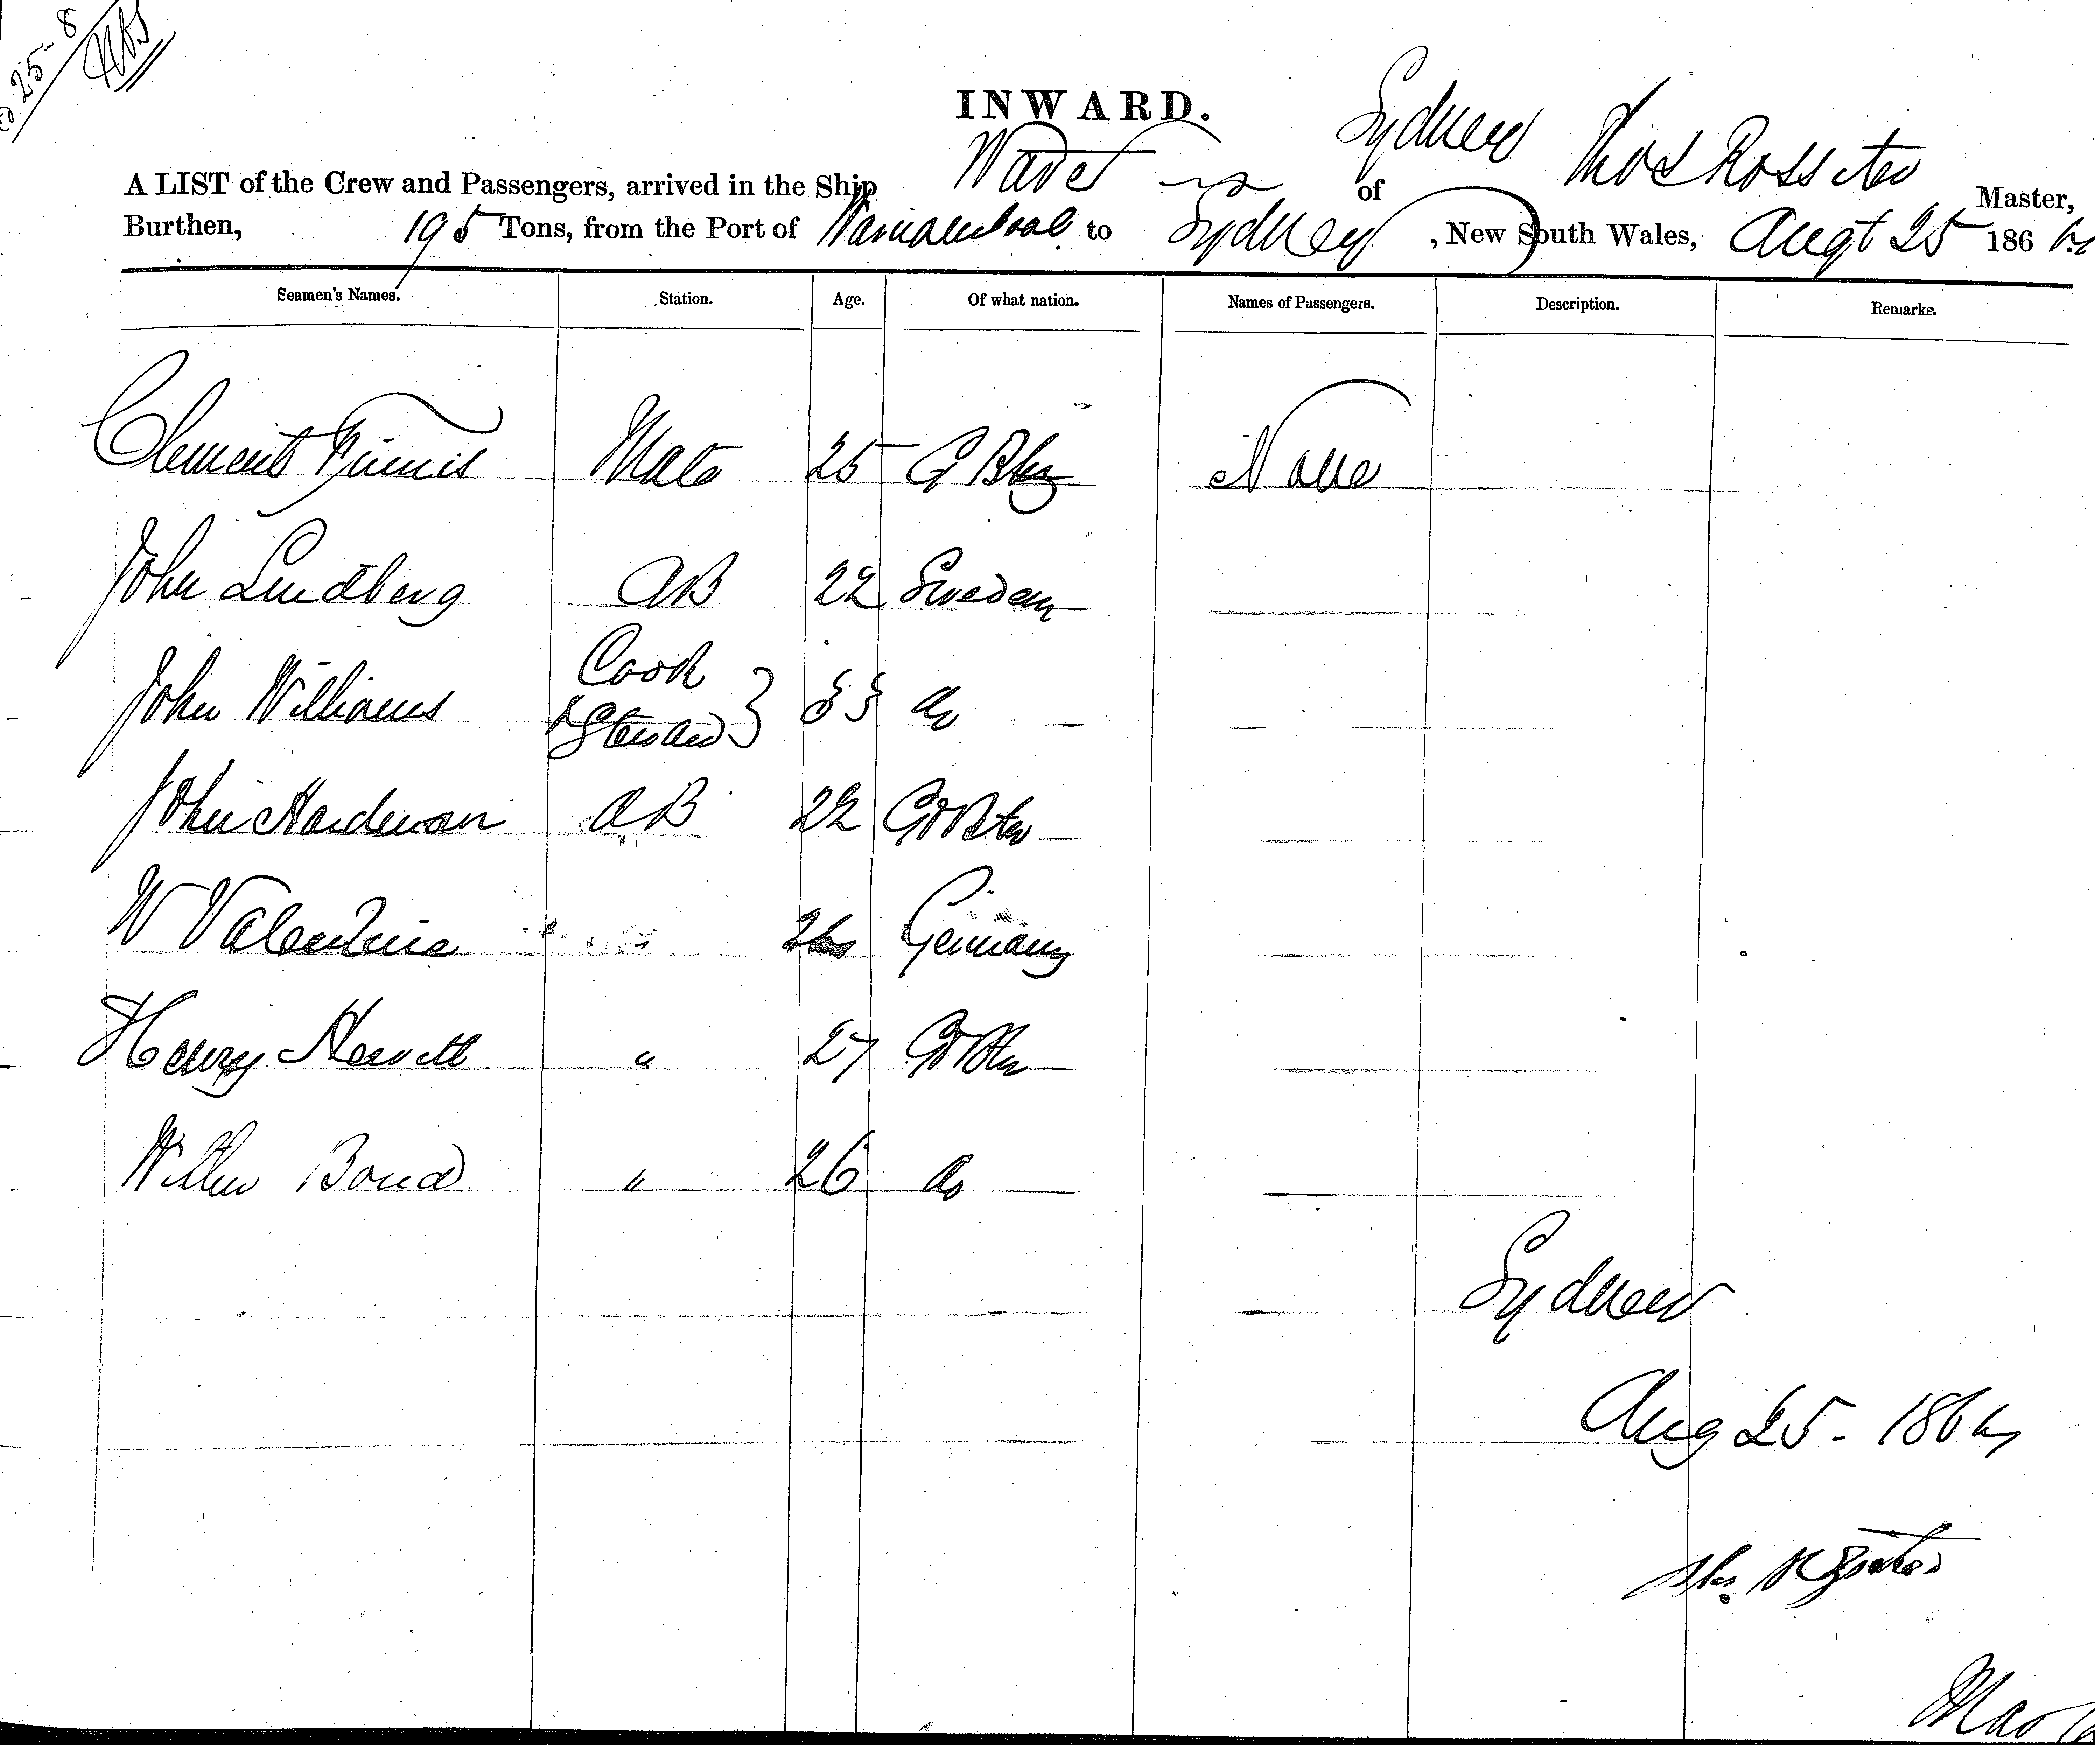 25-8
INWARD.
A LIST of the Crew and Passengers, arrived in the Ship Waver of Sydney Thos Rossiter Master,
Burthen, 195 Tons, from the Port of Warnambool to Sydney, New South Wales, Augt 25 186
Seamen's Names. Station. Age. Of what nation. Names of Passengers. Description. Remarks.
Clement Finnis Mate 25 None
John Lindberg AB 22 Sweden
John Williams Cook & Steward } 33 do
John Hardman AB 22 Gt Btn
W Valentine Germany
Henry Hewett " 27 Gt Btn
Willm Bond " 26 do
Sydney
Aug 25 - 186